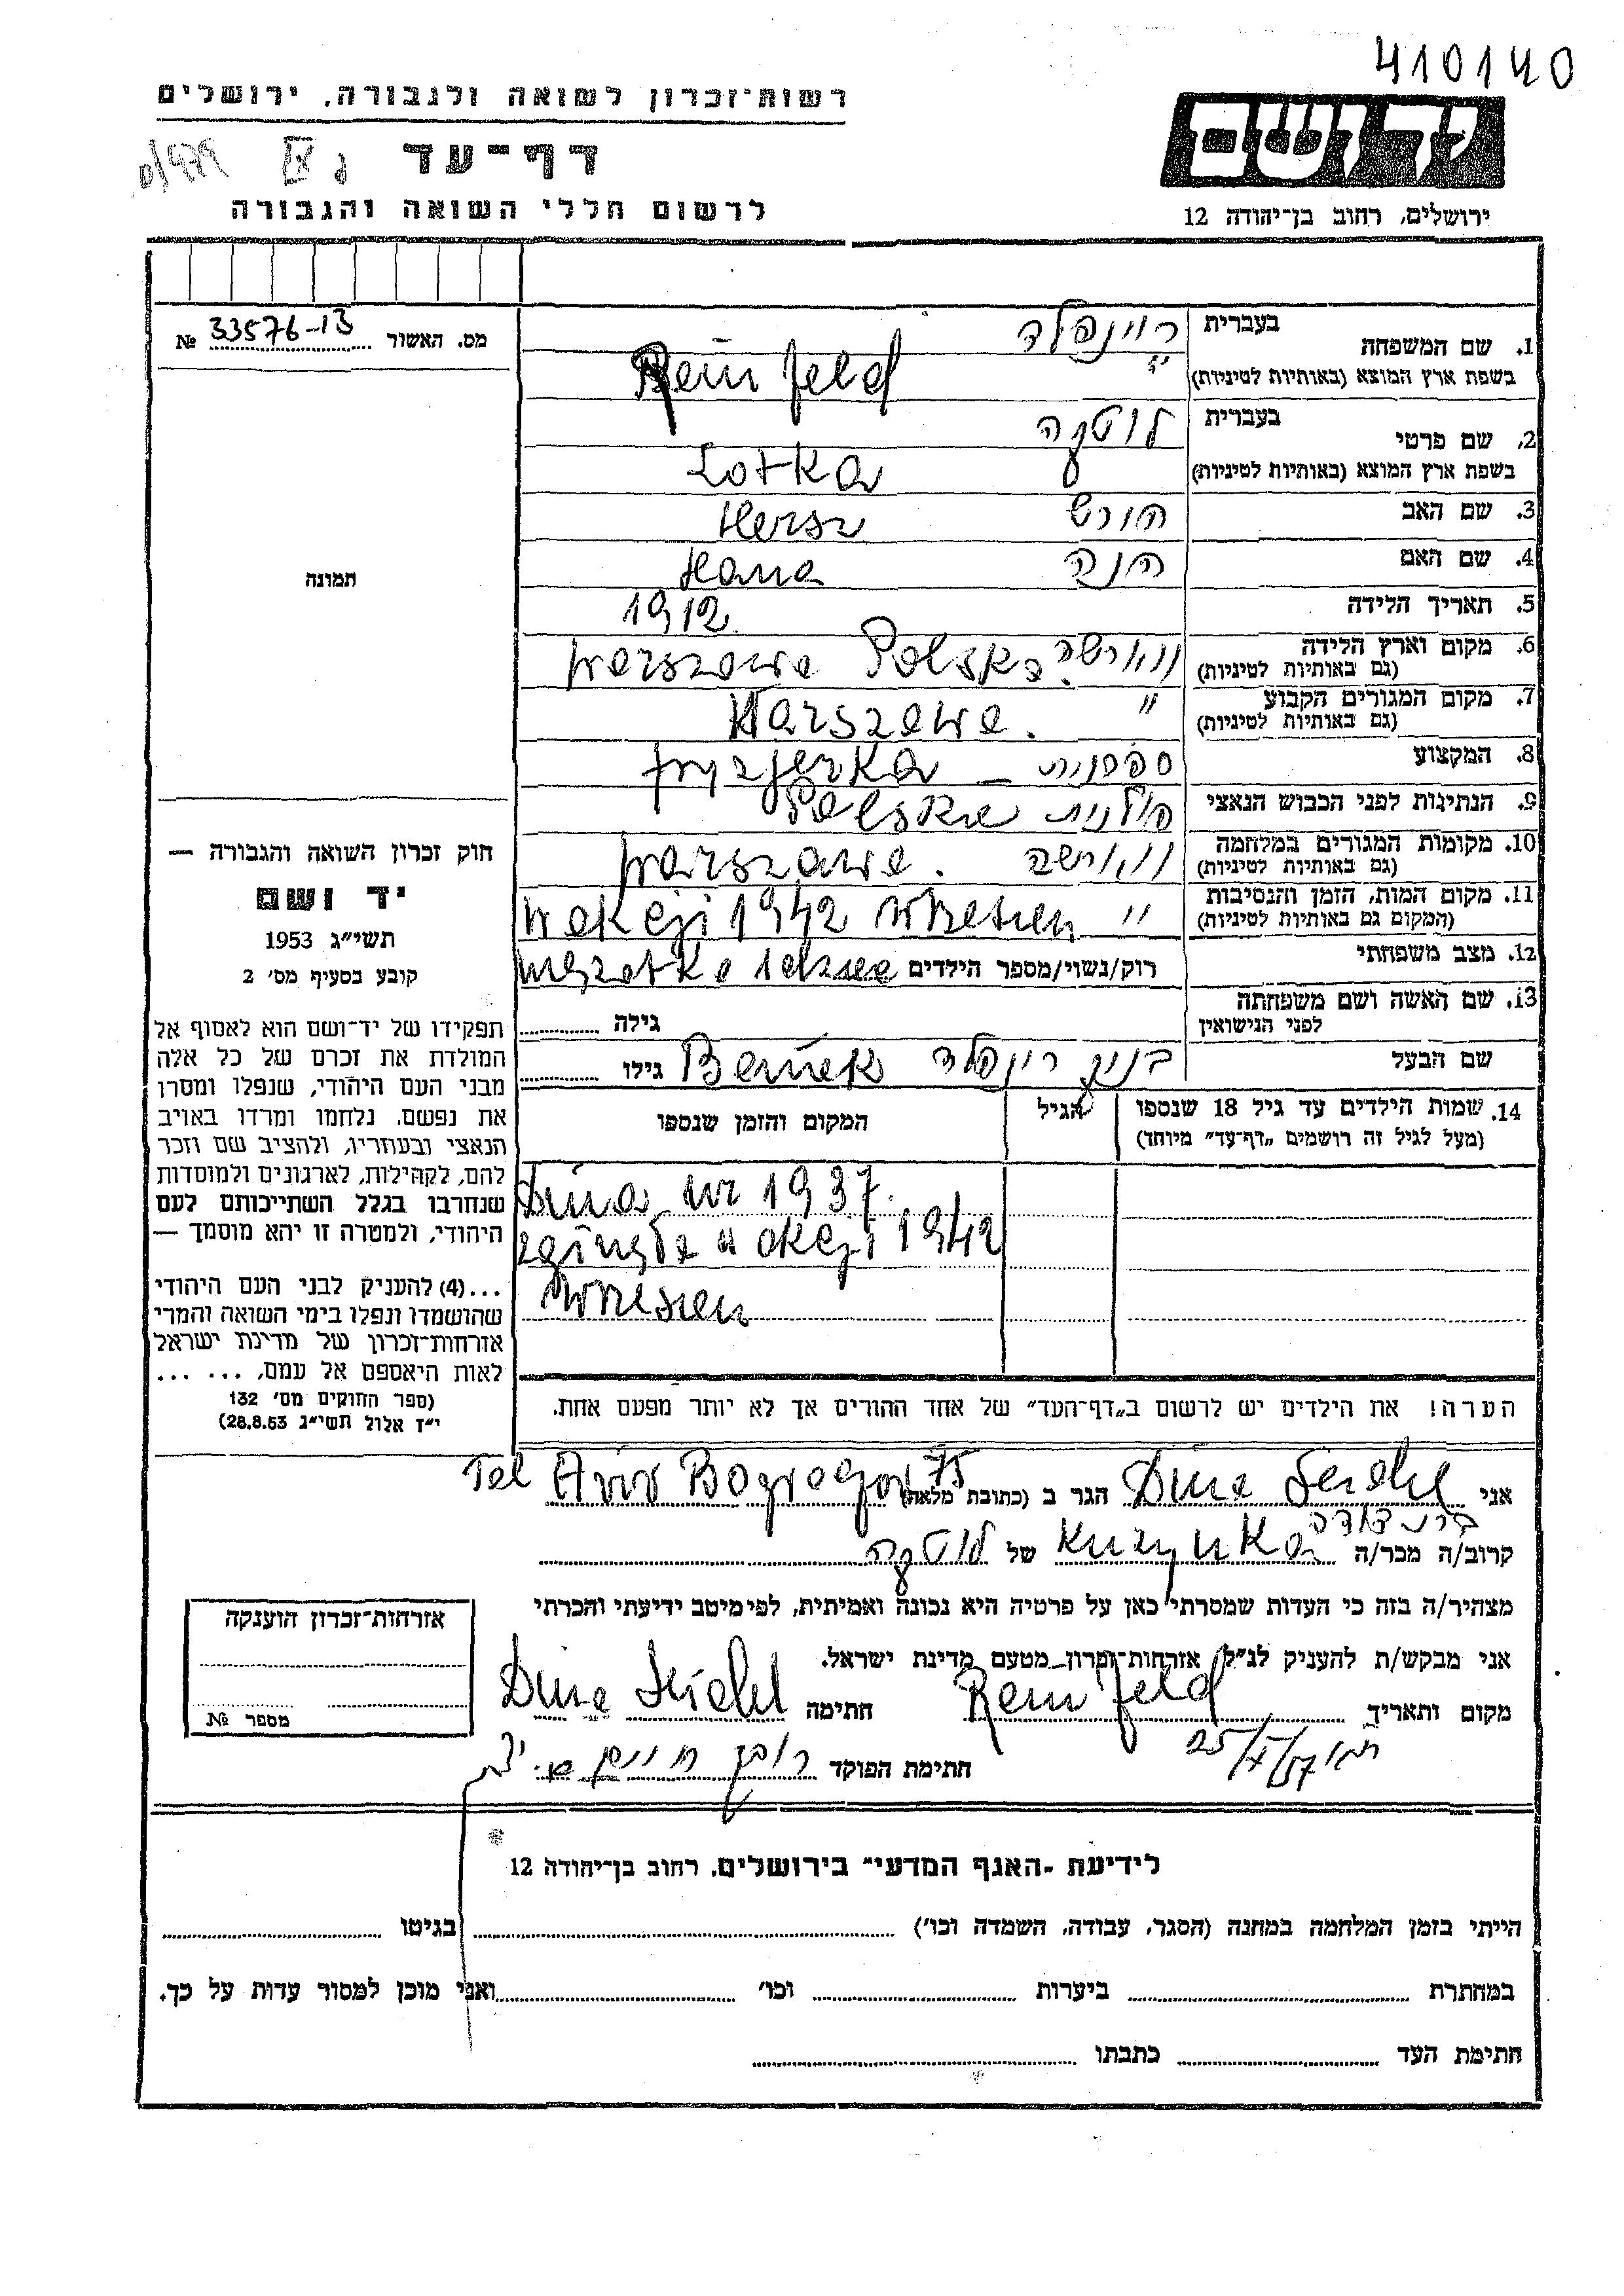 410140
רשות־זכרון לשואה ולגבורה, ירושלים
דף־עד
לרשום חללי השואה והגבורה
יד ושם
ירושלים, רחוב בן־יהודה 12
מס. האשור 33576-13 №
תמונה
חוק זכרון השואה והגבורה —
יד ושם
תשי״ג 1953
קובע בסעיף מס׳ 2
תפקידו של יד־ושם הוא לאסוף אל
המולדת את זכרם של כל אלה
מבני העם היהודי, שנפלו ומסרו
את נפשם, נלחמו ומרדו באויב
הנאצי ובעוזריו, ולהציב שם וזכר
להם, לקהילות, לארגונים ולמוסדות
שנחרבו בגלל השתייכותם לעם
היהודי, ולמטרה זו יהא מוסמך —
...(4) להעניק לבני העם היהודי
שהושמדו ונפלו בימי השואה והמרי
אזרחות־זכרון של מדינת ישראל
לאות היאספם אל עמם, ... ...
(ספר החוקים מס׳ 132
י״ז אלול תשי״ג 28.8.53)
1. שם המשפחה בעברית ריינפלד
בשפת ארץ המוצא (באותיות לטיניות) Reinfeld
2. שם פרטי בעברית לוטקה
בשפת ארץ המוצא (באותיות לטיניות) Lotka
3. שם האב הורש Hersz
4. שם האם חנה Hana
5. תאריך הלידה 1912
6. מקום וארץ הלידה (גם באותיות לטיניות) ווארשה Warszawa Polska
7. מקום המגורים הקבוע (גם באותיות לטיניות) " Warszawa.
8. המקצוע ספרית – fryzjerka
9. הנתינות לפני הכבוש הנאצי פולנית Polska
10. מקומות המגורים במלחמה (גם באותיות לטיניות) ווארשה Warszawa.
11. מקום המות, הזמן והנסיבות (המקום גם באותיות לטיניות) " W akcji 1942 Wrzesień
12. מצב משפחתי רוק/נשוי/מספר הילדים mężatka 1 dziecko
13. שם האשה ושם משפחתה לפני הנישואין גילה
שם הבעל בניק ריינפלד Beniek גילו
14. שמות הילדים עד גיל 18 שנספו
(מעל לגיל זה רושמים „דף־עד״ מיוחד)
הגיל
המקום והזמן שנספו
Dina ur 1937.
zginęła w akcji 1942
Wrzesień
הערה! את הילדים יש לרשום ב„דף־העד״ של אחד ההורים אך לא יותר מפעם אחת.
אני Dina Seidel הגר ב (כתובת מלאה) Tel Aviv 75
קרוב/ה מכר/ה בת דודה Kuzynka של לוטקה
מצהיר/ה בזה כי העדות שמסרתי כאן על פרטיה היא נכונה ואמיתית, לפי מיטב ידיעתי והכרתי
אני מבקש/ת להעניק לנ״ל אזרחות־זכרון מטעם מדינת ישראל.
מקום ותאריך Reinfeld חתימה Dina Seidel
25/ /57
חתימת הפוקד
אזרחות־זכרון הוענקה
מספר №
לידיעת „האגף המדעי״ בירושלים, רחוב בן־יהודה 12
הייתי בזמן המלחמה במחנה (הסגר, עבודה, השמדה וכו׳) בגיטו
במחתרת ביערות וכו׳ ואני מוכן למסור עדות על כך.
חתימת העד כתבתו